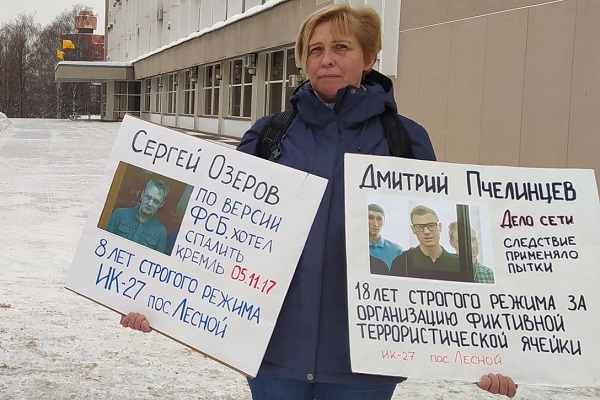 СЕРГЕЙ ОЗЕРОВ
ПО ВЕРСИИ
ФСБ, ХОТЕЛ
СПАЛИТЬ
КРЕМЛЬ 05.11.17
8 ЛЕТ СТРОГОГО РЕЖИМА
ИК-27 ПОС ЛЕСНОЙ
ДМИТРИЙ ПЧЕЛИНЦЕВ
ДЕЛО СЕТИ
СЛЕДСТВИЕ
ПРИМЕНЯЛО
ПЫТКИ
18 ЛЕТ СТРОГОГО РЕЖИМА ЗА
ОРГАНИЗАЦИЮ ФИКТИВНОЙ
ТЕРРОРИСТИЧЕСКОЙ ЯЧЕЙКИ
ИК-27 ПОС. ЛЕСНОЙ